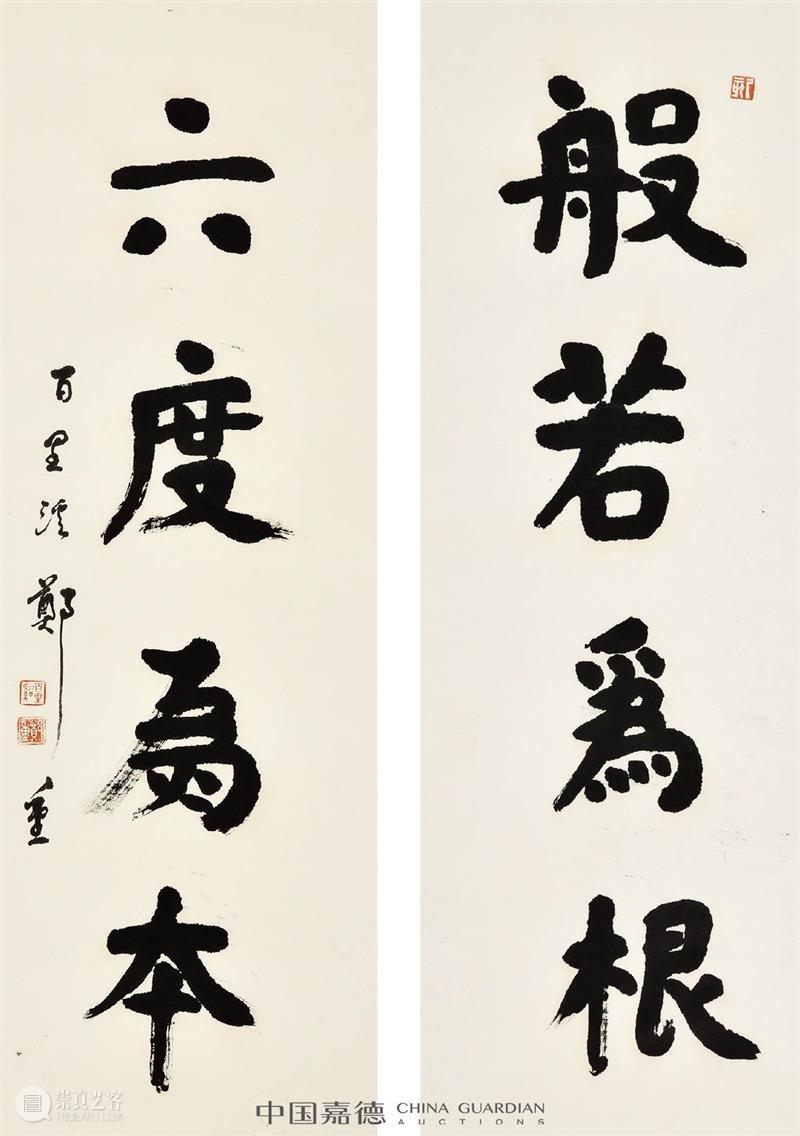 般若爲根
六度為本
百里溪鄭重
中国嘉德 CHINA GUARDIAN
AUCTIONS
崇真艺客
WWW.TRUEART.COM